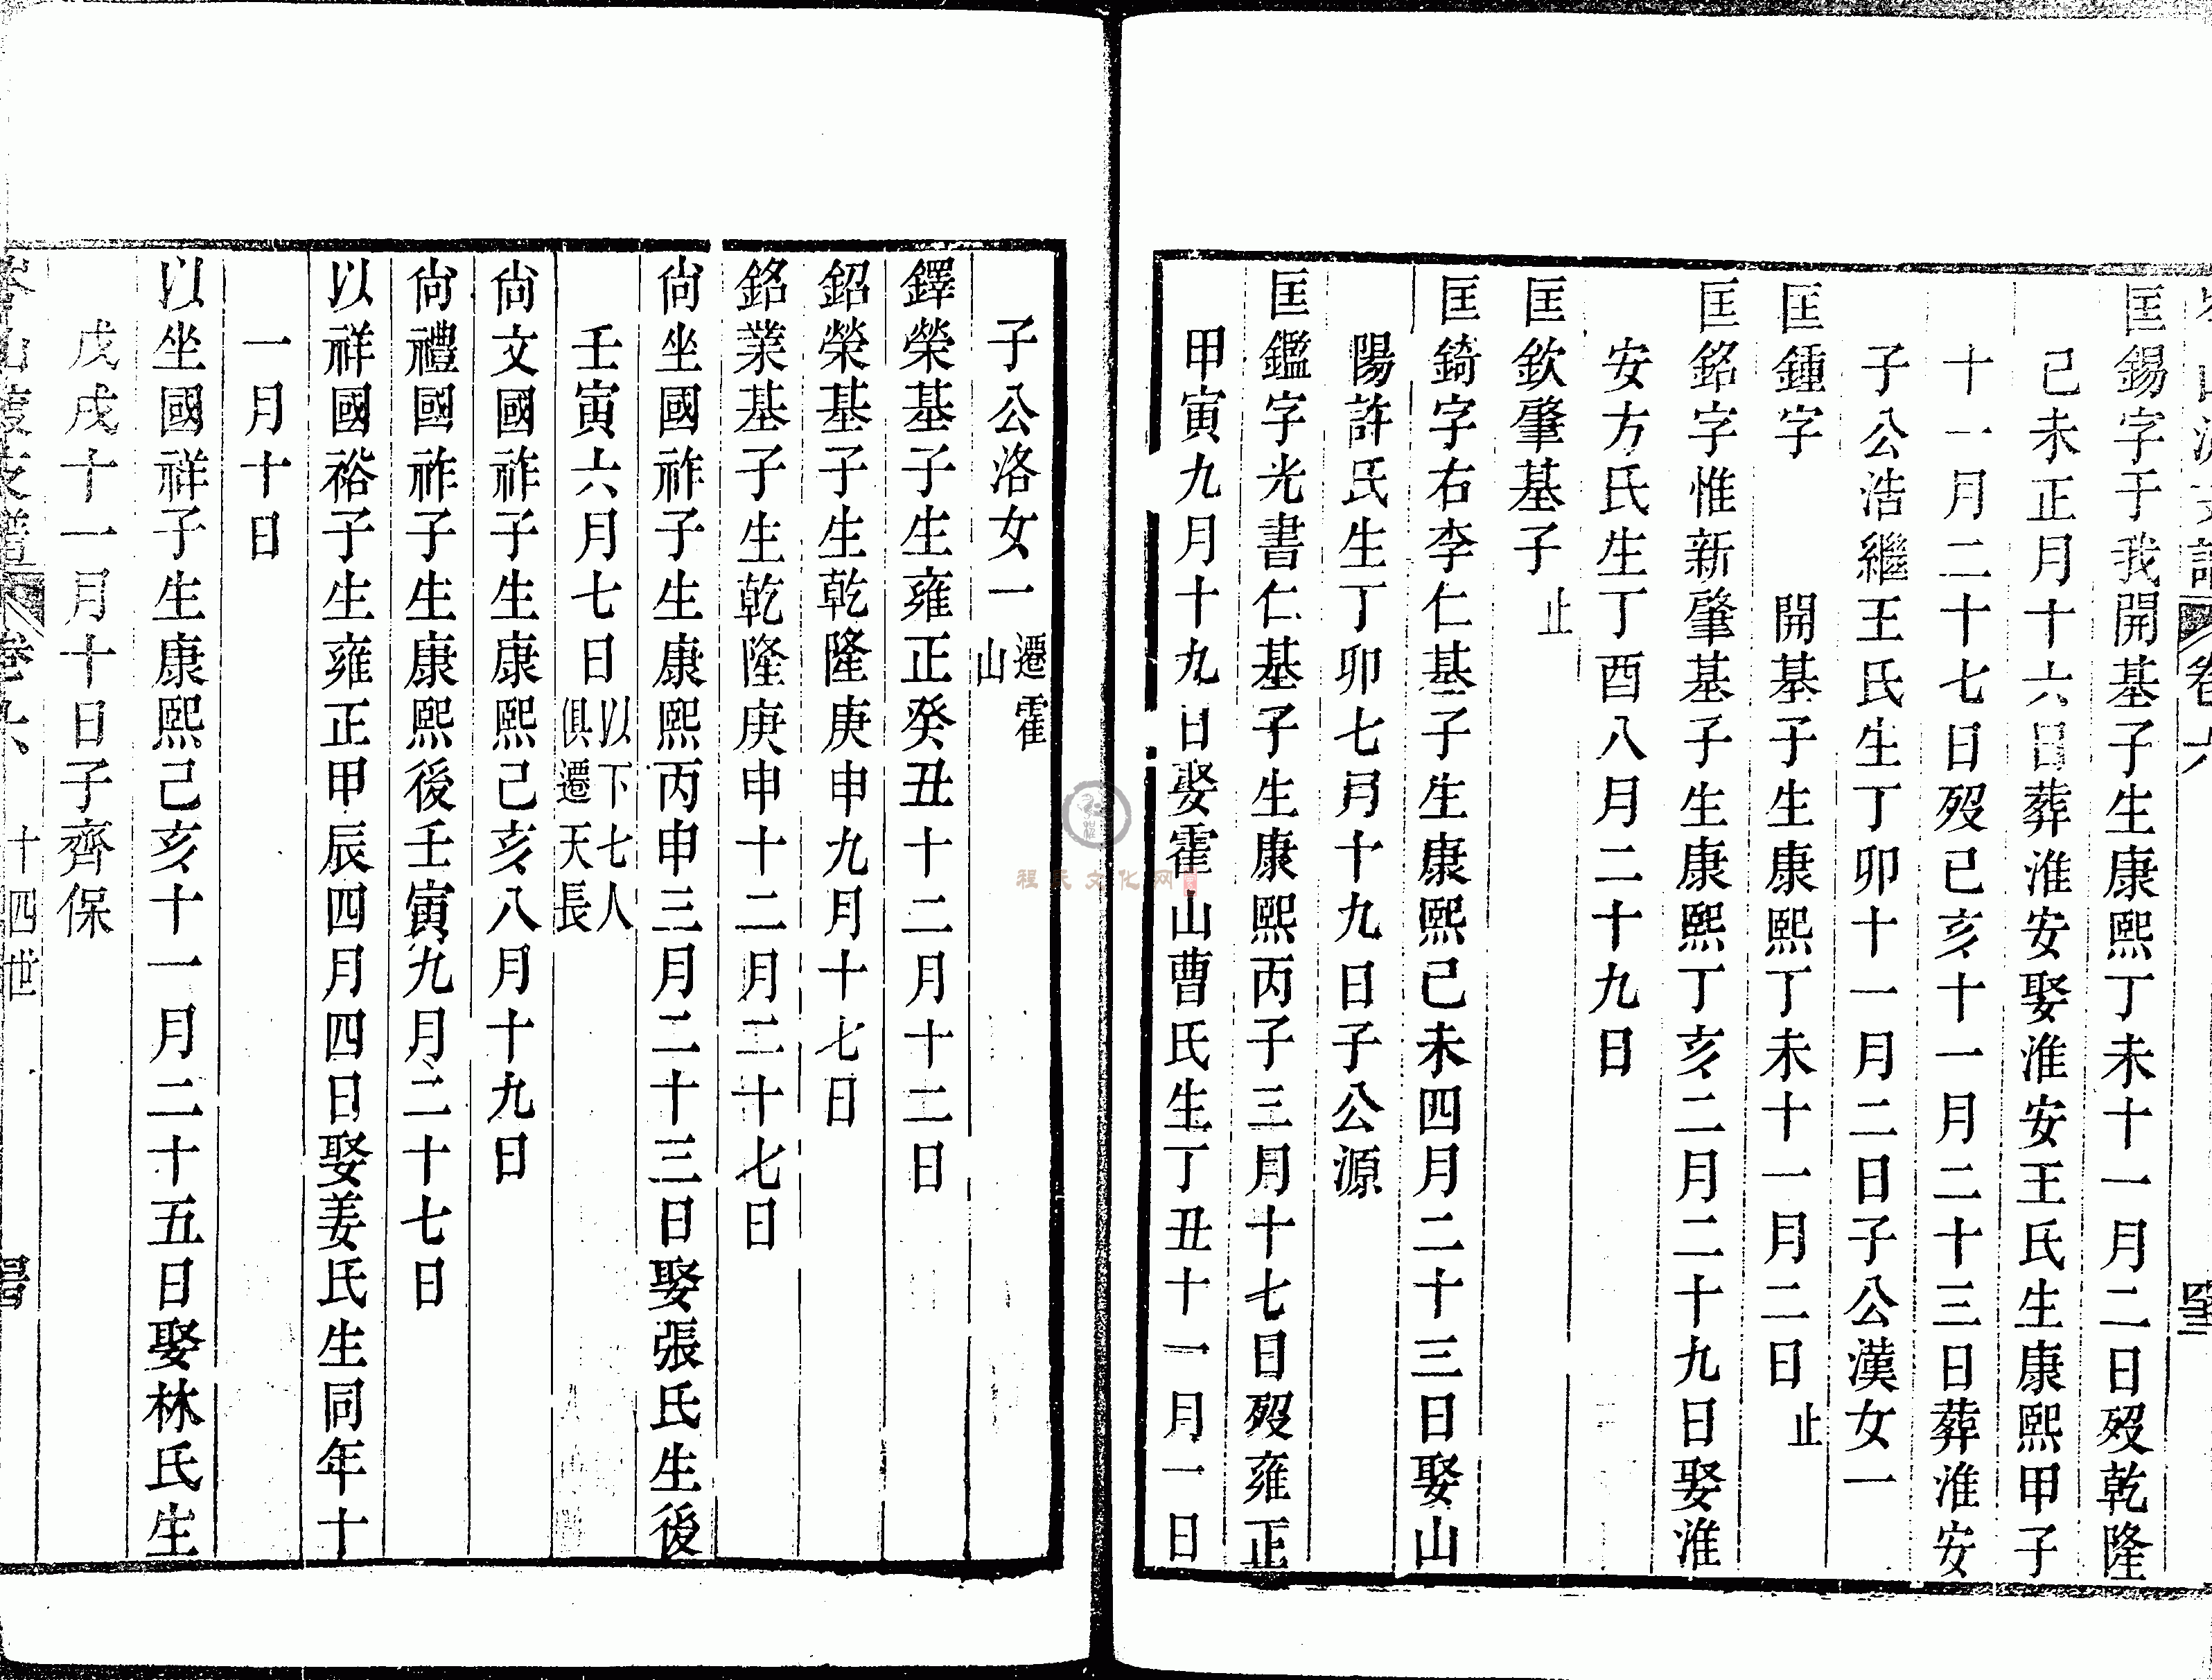 匡錫字于我開基子生康熙丁未十一月二日歿乾隆
己未正月十六日葬淮安娶淮安王氏生康熙甲子
十一月二十七日歿已亥十一月二十三日葬淮安
子公浩繼王氏生丁卯十一月二日子公漢女一
匡鍾字　開基子生康熙丁未十一月二日止
匡銘字惟新肇基子生康熙丁亥二月二十九日娶淮
安方氏生丁酉八月二十九日
匡欽肇基子止
匡錡字右李仁基子生康熙己未四月二十三日娶山
陽許氏生丁卯七月十九日子公源
匡鑑字光書仁基子生康熙丙子三月十七日歿雍正
甲寅九月十九日娶霍山曹氏生丁丑十一月一日
子公洛女一遷霍山
鐸榮基子生雍正癸丑十二月十二日
鉊榮基子生乾隆庚申九月十七日
銘業基子生乾隆庚申十二月二十七日
尙坐國祚子生康熙丙申三月二十三日娶張氏生後
壬寅六月七日以下七人俱遷天長
尙文國祚子生康熙己亥八月十九日
尙禮國祚子生康熙後壬寅九月二十七日
以祥國裕子生雍正甲辰四月四日娶姜氏生同年十
一月十日
以坐國祥子生康熙己亥十一月二十五日娶林氏生
戊戌十一月十日子齊保
卷六　十四世
程氏文化网